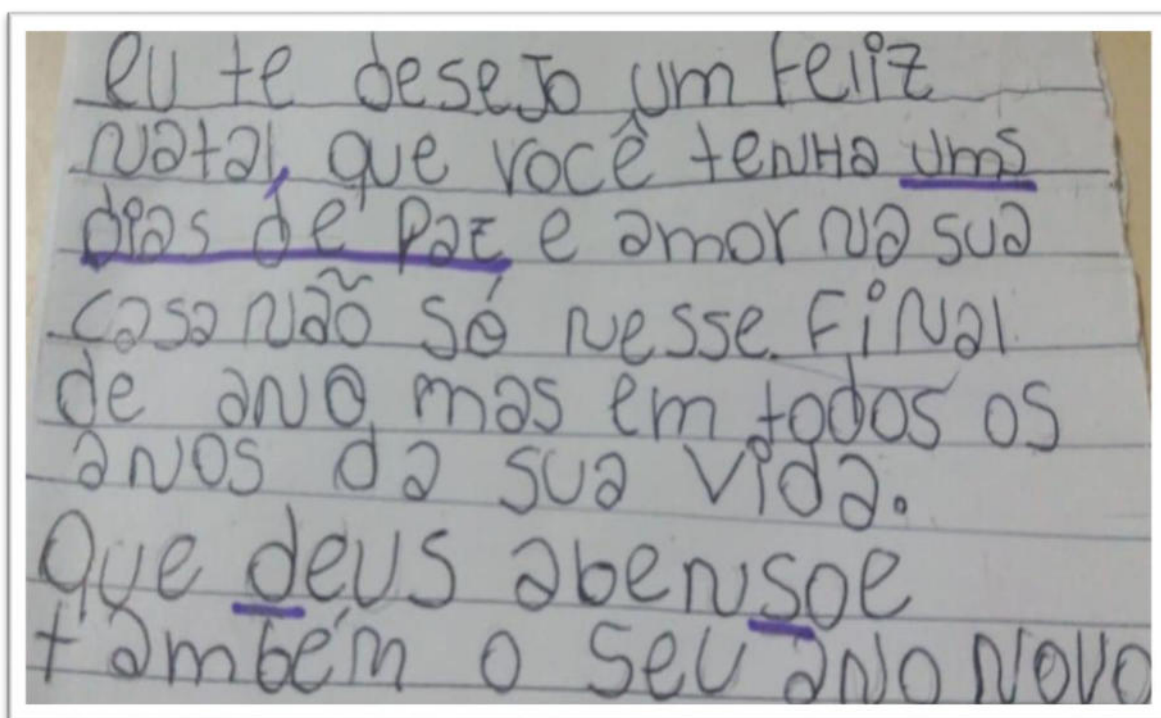 eu te desejo um feliz
natal, que você tenha ums
dias de paz e amor na sua
casa não só nesse final
de ano mas em todos os
anos da sua vida.
Que deus abensoe
também o seu ano novo